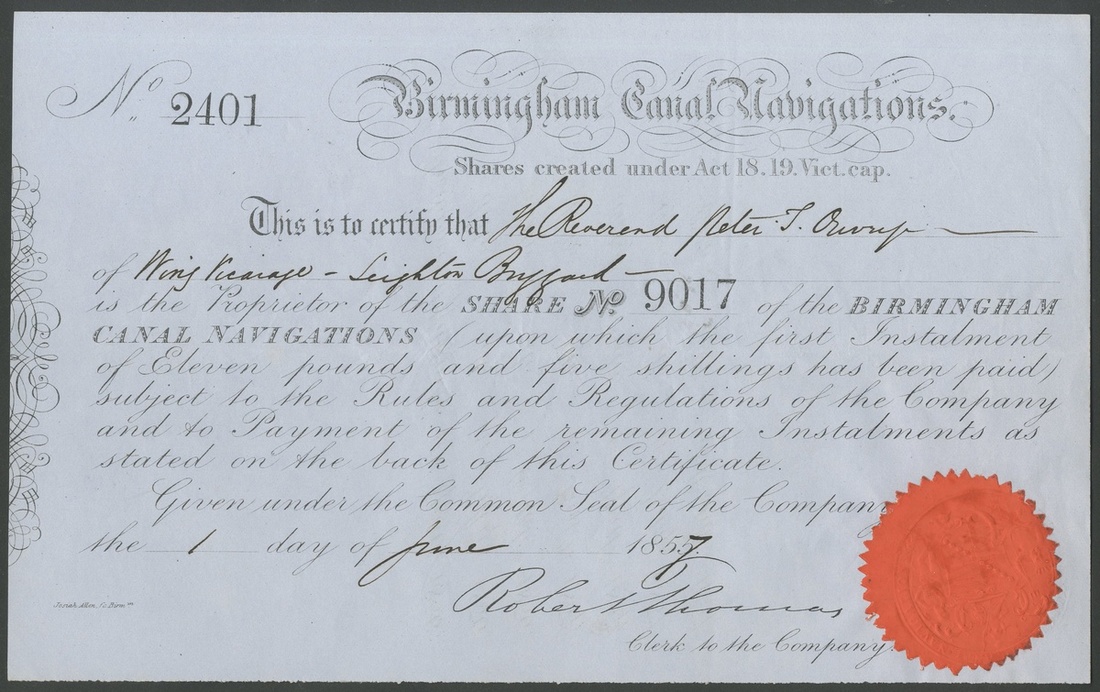 No 2401
Birmingham Canal Navigations.
Shares created under Act 18.19. Vict. cap.
This is to certify that The Reverend Peter T. Ouvry
of Wing Vicarage - Leighton Buzzard
is the Proprietor of the SHARE No. 9017 of the BIRMINGHAM
CANAL NAVIGATIONS (upon which the first Instalment
of Eleven pounds and five shillings has been paid)
subject to the Rules and Regulations of the Company
and to Payment of the remaining Instalments as
stated on the back of this Certificate.
Given under the Common Seal of the Company
the 1 day of June 1857
Robert Thomas
Josiah Allen, Sc. Birm.
Clerk to the Company.